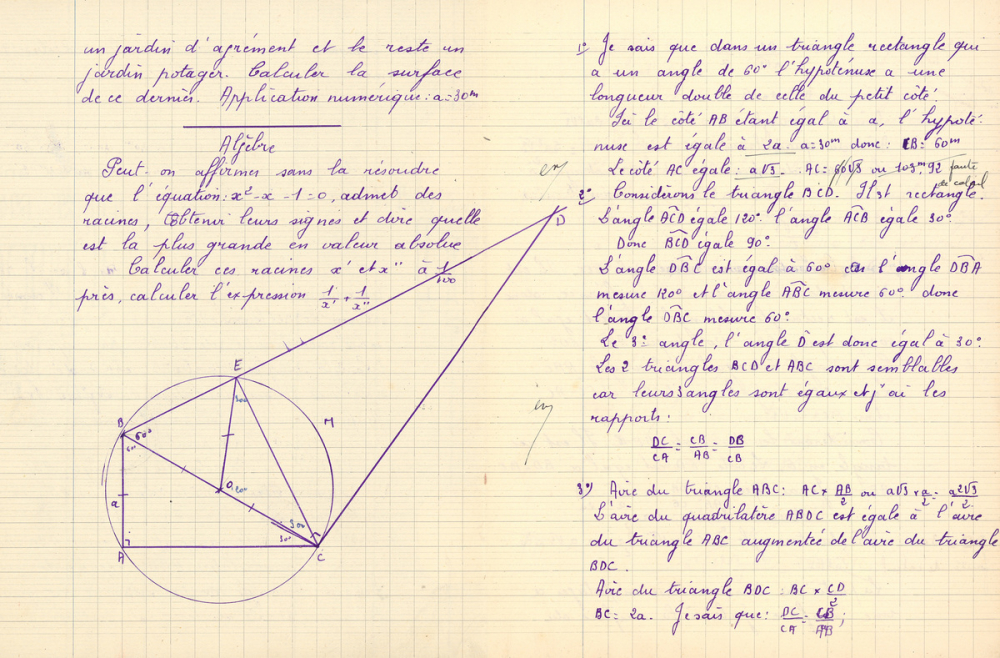 un jardin d'agrément et le reste un
jardin potager. Calculer la surface
de ce dernier. Application numérique : a = 30m
Algèbre
Peut-on affirmer sans la résoudre
que l'équation : x² - x - 1 = 0, admet des
racines, Obtenir leurs signes et dire quelle
est la plus grande en valeur absolue
Calculer ces racines x' et x'' à 1/100
près, calculer l'expression 1/x' + 1/x''
D
E
B
60°
M
O
a
30°
A
C
1° Je sais que dans un triangle rectangle qui
a un angle de 60° l'hypoténuse a une
longueur double de celle du petit côté.
Ici le côté AB étant égal à a, l'hypoté-
nuse est égale à 2a. a = 30m donc : CB = 60m
Le côté AC égale : a√3. AC = 60√3 ou 103m,92 faute
de calcul
2° Considérons le triangle BCD. Il est rectangle.
L'angle ACD égale 120° l'angle ACB égale 30°
Donc BCD égale 90°.
L'angle DBC est égal à 60° l'angle DBA
mesure 120° et l'angle ABC mesure 60° donc
l'angle DBC mesure 60°
Le 3° angle, l'angle D est donc égal à 30°
Les 2 triangles BCD et ABC sont semblables
car leurs 3 angles sont égaux et j'ai les
rapports :
DC/CA = CB/AB = DB/CB
3°) Aire du triangle ABC : AC x AB/2 ou a√3 x a/2 = a²√3/2
L'aire du quadrilatère ABDC est égale à l'aire
du triangle ABC augmentée de l'aire du triangle
BDC.
Aire du triangle BDC : BC x CD/2
BC = 2a. Je sais que : DC/CA = CB/AB ;